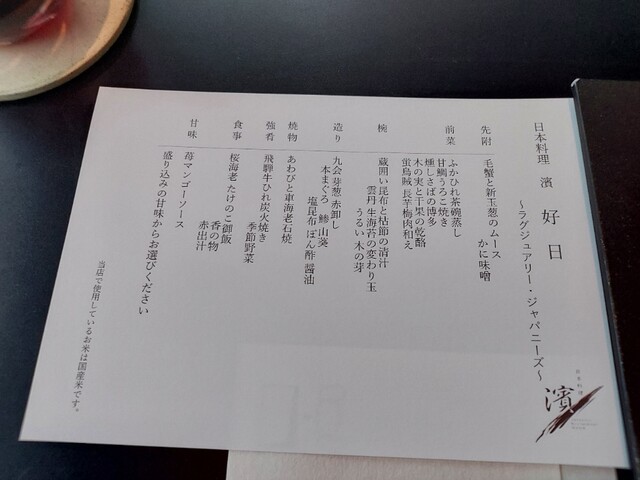 日本料理 濱 好日
～ラグジュアリー・ジャパニーズ～
先附
毛蟹と新玉葱のムース
かに味噌
前菜
ふかひれ茶碗蒸し
甘鯛うろこ焼き
燻しさばの博多
木の実と干果の乾酪
蛍烏賊 長芋梅肉和え
椀
蔵囲い昆布と枯節の清汁
雲丹 生海苔の変わり玉
うるい 木の芽
造り
九会 芽葱 赤卸し
本まぐろ 鯵 山葵
塩昆布 ぽん酢 醤油
焼物
あわびと車海老石焼
強肴
飛騨牛ひれ炭火焼き
季節野菜
食事
桜海老 たけのこ御飯
香の物
赤出汁
甘味
苺マンゴーソース
盛り込みの甘味からお選びください
当店で使用しているお米は国産米です。
日本料理
濱